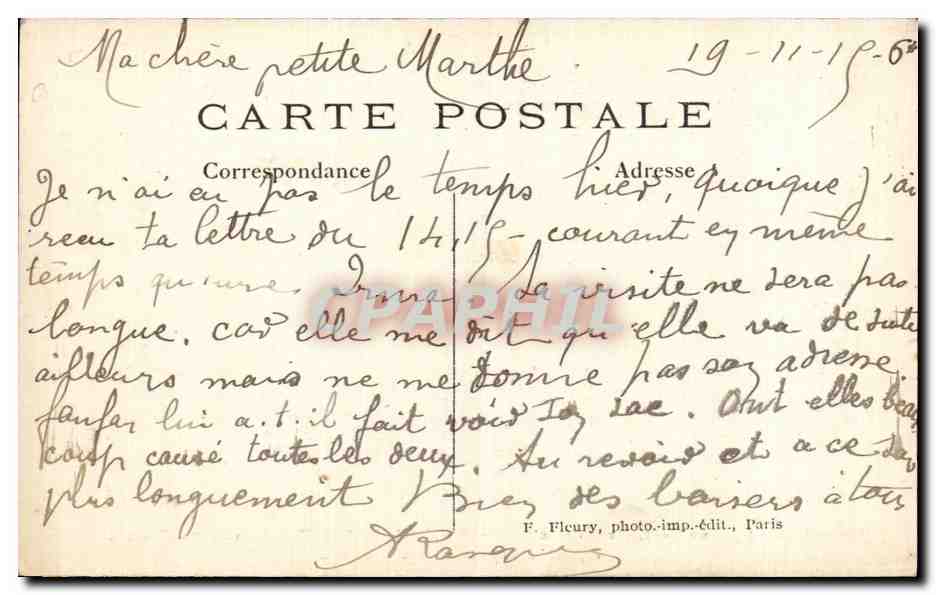 Ma chère petite Marthe. 19-11-15-6h
CARTE POSTALE
Correspondance Adresse
Je n'ai eu pas le temps hier, quoique j'ai
recu ta lettre du 14, 15 - courant en même
temps qu'une Irma. La visite ne sera pas
longue. car elle me dit qu'elle va de suite
ailleurs mais ne me donne pas son adresse.
fanfan lui a.t.il fait voir son sac. Ont elles beau
coup causé toutes les deux. Au revoir et a ce soir
plus longuement Bien des baisers à tous
F. Fleury, photo.-imp.-édit., Paris
CPAPHIL